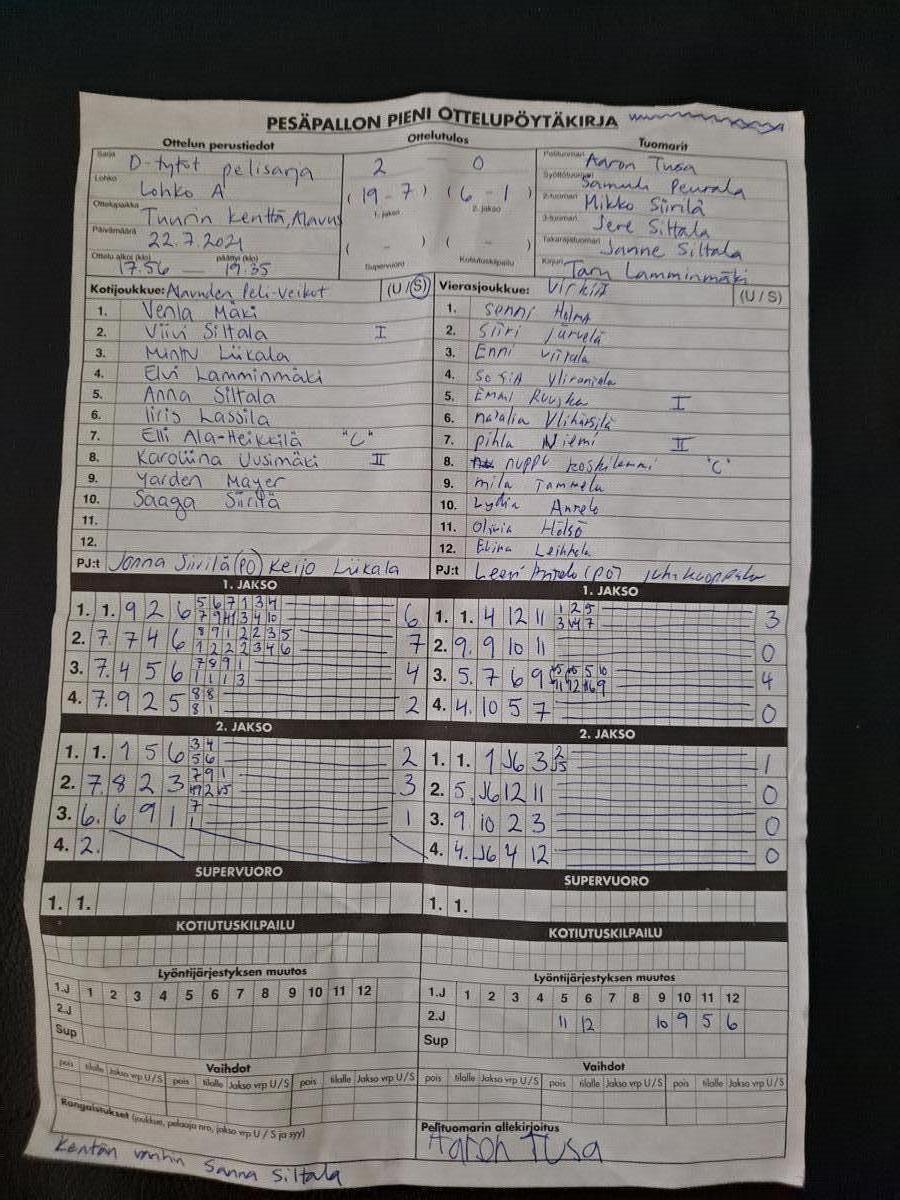 PESÄPALLON PIENI OTTELUPÖYTÄKIRJA
Ottelun perustiedot Ottelutulos Tuomarit
Sarja D-tytöt pelisarja
Lohko Lohko A
Ottelupaikka Tuurin kenttä, Alavus
Päivämäärä 22.7.2021
Ottelu alkoi (klo) päättyi (klo)
17.56 — 19.35
2 0
(19 - 7) (6 - 1)
1. jakso 2. jakso
( - ) ( - )
Supervuoro Kotiutuskilpailu
Pelituomari Aaron Tusa
Syöttötuomari Samuli Peurala
2-tuomari Mikko Siirilä
3-tuomari Jere Siltala
Takarajatuomari Janne Siltala
Kirjuri Taru Lamminmäki
Kotijoukkue: Alavuden Peli-Veikot (U/S)
1. Venla Mäki
2. Viivi Siltala I
3. Minttu Liikala
4. Elvi Lamminmäki
5. Anna Siltala
6. Iiris Lassila
7. Elli Ala-Heikkilä "C"
8. Karoliina Uusimäki II
9. Yarden Mayer
10. Saaga Siirilä
11.
12.
PJ:t Jonna Siirilä (PO) Keijo Liikala
Vierasjoukkue: Virkiä (U/S)
1. Senni Holma
2. Siiri Järvelä
3. Enni Viitala
4. Sofia
5. Emmi Ruuska I
6. Natalia
7. Pihla Niemi II
8. Nuppu Koskilammi "C"
9. Mila Tammela
10. Lydia Annelo
11. Olivia Holsö
12. Elina
PJ:t Leeni (PO)
1. JAKSO
1. 1. 9 2 6 6
2. 7. 7 4 6 7
3. 7. 4 5 6 4
4. 7. 9 2 5 2
1. JAKSO
1. 1. 4 12 11 3
2. 9. 9 10 11 0
3. 5. 7 6 9 4
4. 4. 10 5 7 0
2. JAKSO
1. 1. 1 5 6 2
2. 7. 8 2 3 3
3. 6. 6 9 1 1
4. 2.
2. JAKSO
1. 1. 1 J6 3 1
2. 5. J6 12 11 0
3. 9. 10 2 3 0
4. 4. J6 4 12 0
SUPERVUORO SUPERVUORO
1. 1. 1. 1.
KOTIUTUSKILPAILU KOTIUTUSKILPAILU
Lyöntijärjestyksen muutos
1.J 1 2 3 4 5 6 7 8 9 10 11 12
2.J
Sup
Lyöntijärjestyksen muutos
1.J 1 2 3 4 5 6 7 8 9 10 11 12
2.J 11 12 10 9 5 6
Sup
Vaihdot
pois tilalle Jakso vrp U/S pois tilalle Jakso vrp U/S pois tilalle Jakso vrp U/S
Vaihdot
pois tilalle Jakso vrp U/S pois tilalle Jakso vrp U/S pois tilalle Jakso vrp U/S
Rangaistukset (joukkue, pelaaja nro, jakso vrp U / S ja syy)
Kentän vanhin Sanna Siltala
Pelituomarin allekirjoitus
Aaron Tusa